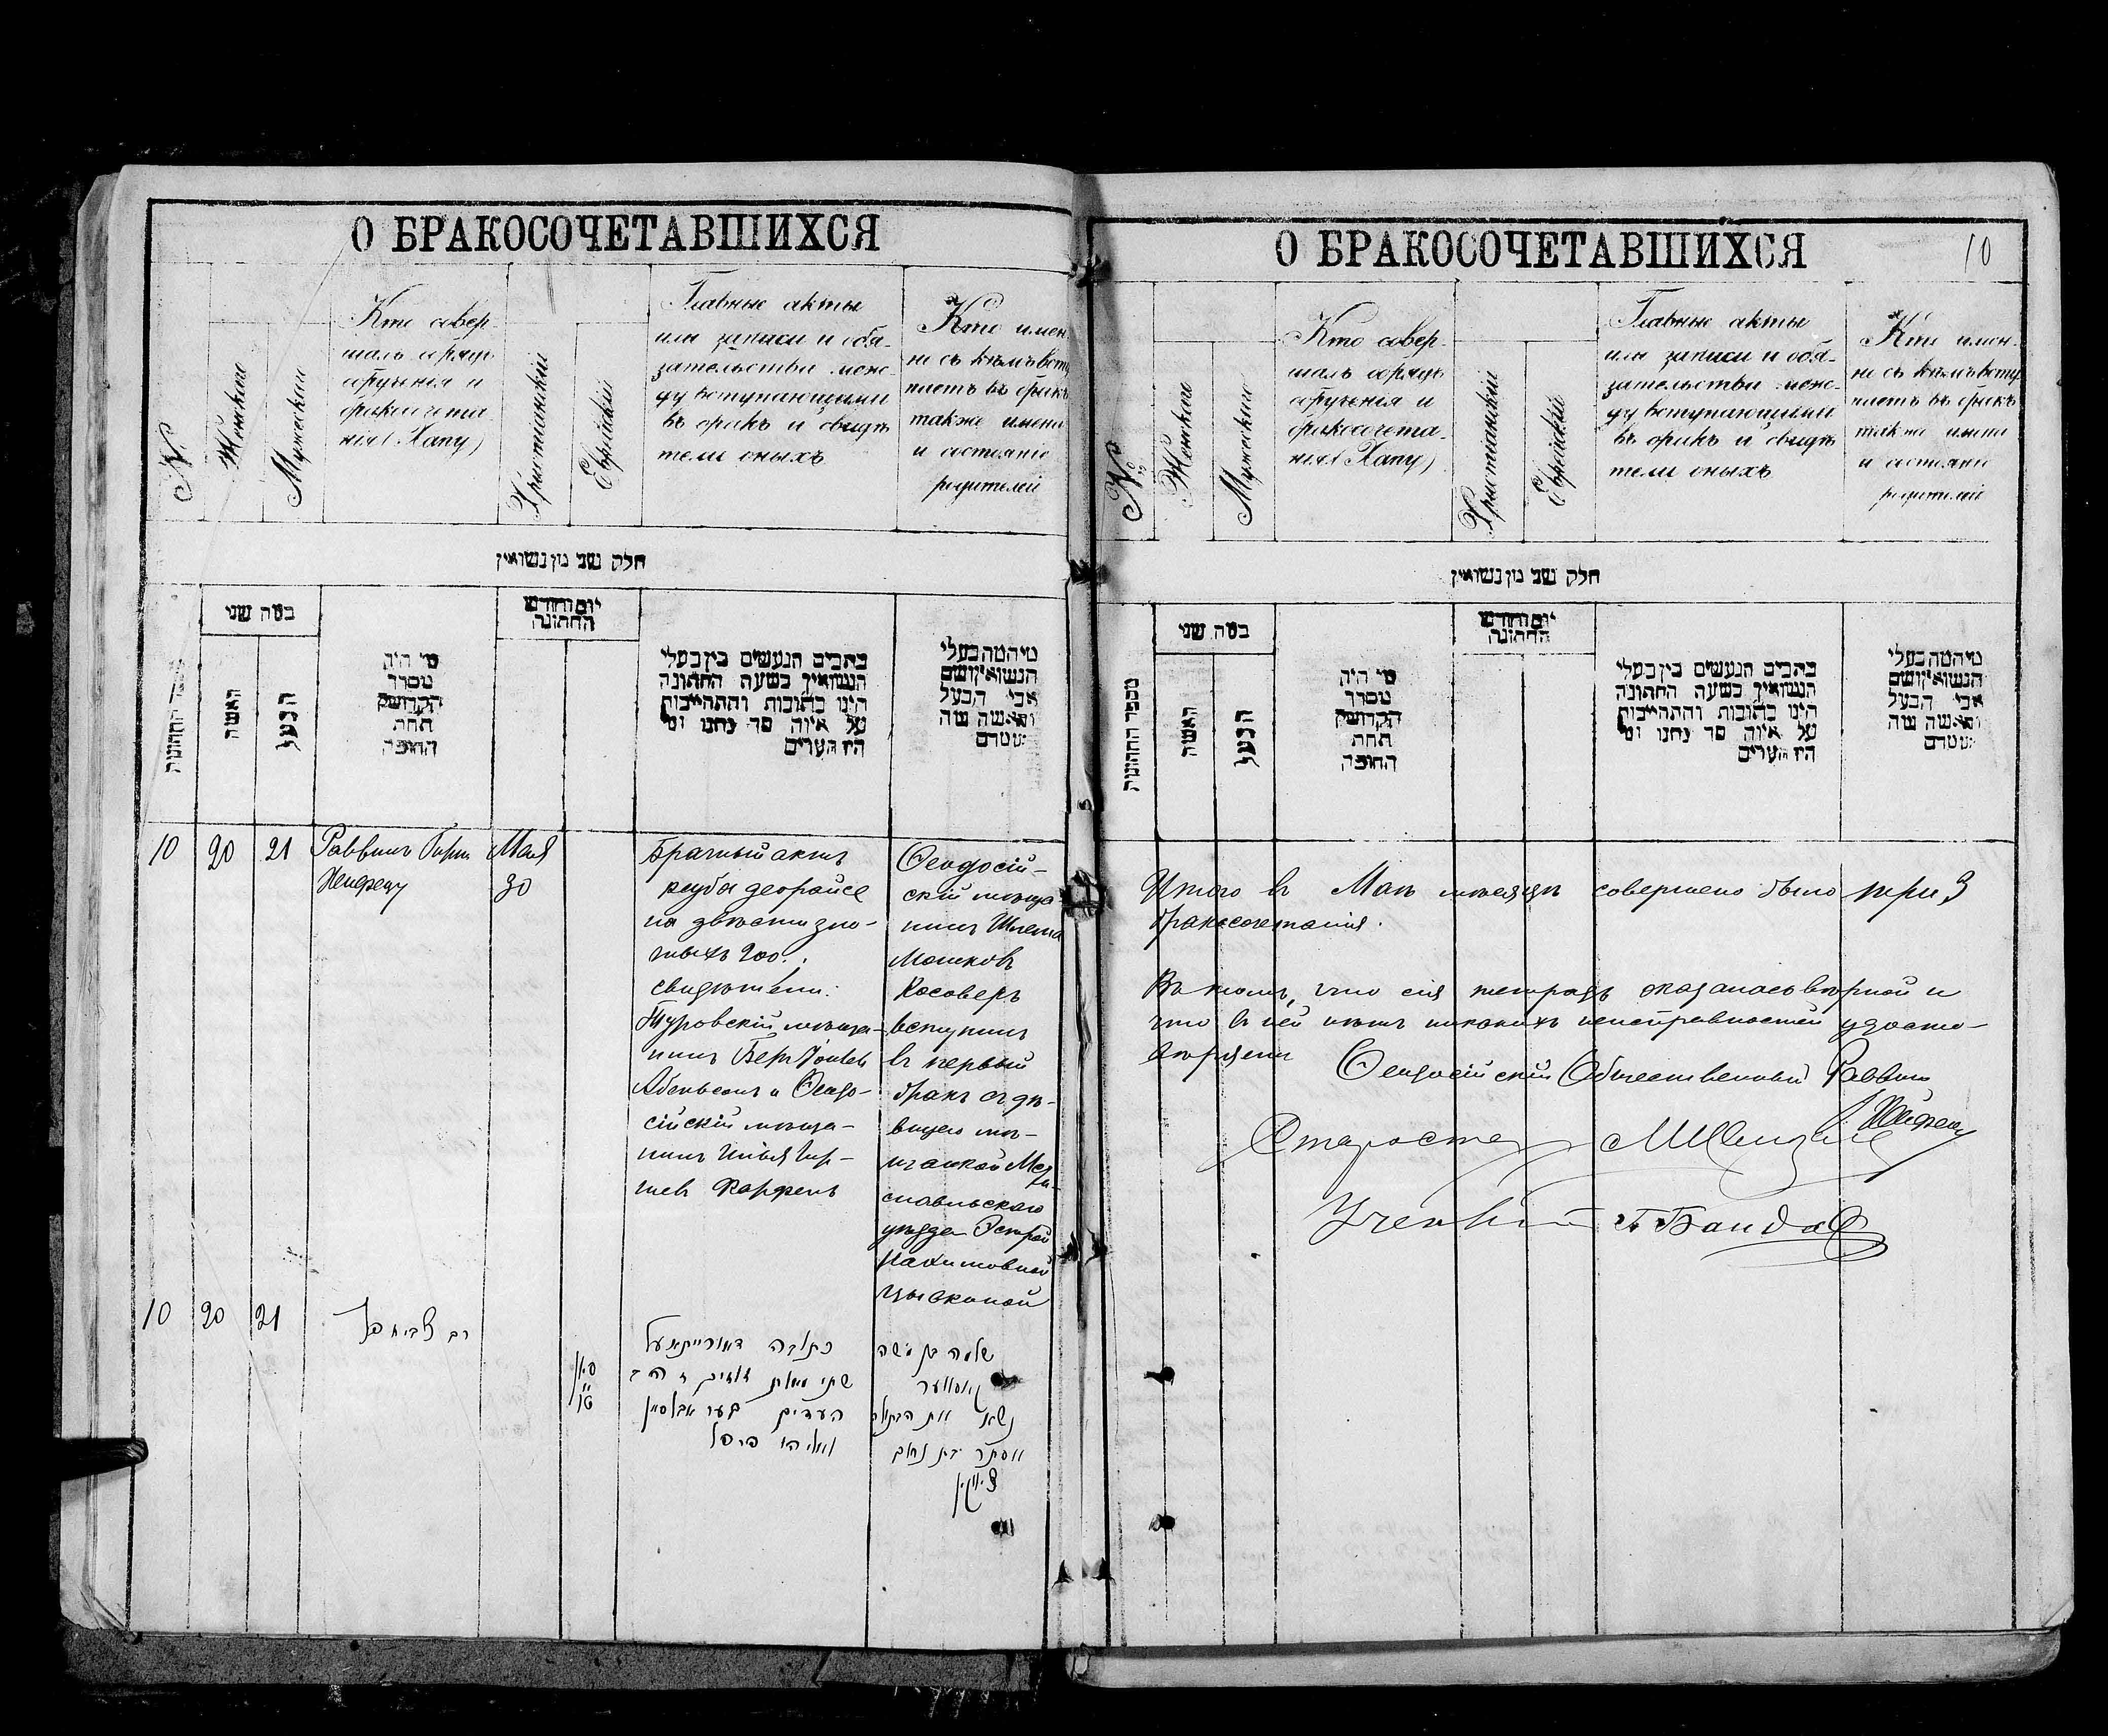 О БРАКОСОЧЕТАВШИХСЯ
№
Женского
Мужескаго
Кто совер-
шалъ обрядъ
обрученія и
бракосочета
нія (Хапу)
Христіанскій
Еврейскій
Главные акты
или записи и обя-
зательства меж-
ду вступающими
въ бракъ и свидѣ
тели оныхъ
Кто имен
но съ кѣмъ вступ
паетъ въ бракъ
также имена
и состояніе
родителей
חלק שני מן נשואין
מספר החתונות
כמה שני
האשה
הבעל
מי היה
מסדר
הקדושין
תחת
החופה
יום וחודש
החתונה
כתבים הנעשים בין בעלי
הנשואין בשעה החתונה
היינו כתובות והתחייבות
על איזה סך נתנו ומי
היו העדים
מי המה בעלי
הנשואין ושם
אבי הבעל
והאשה ומה
מעמדם
10 20 21
Раввинъ Гирш
Нейфелд
Мая
30
Брачный актъ
ксуба деорайсе
на двѣсти зло-
тыхъ 200.
свидѣтели:
Туровскій мѣща-
нинъ Беръ
Абельсонъ и Ѳеодо-
сійскій мѣща-
нинъ Илья Гир-
шев
Ѳеодосій-
скій мѣща
нинъ Шлема
Мошковъ
Косоверъ
вступилъ
въ первый
бракъ съ дѣ-
вицею мѣ-
щанкой
славльскаго
уѣзда Эстрой
10 20 21
רב צבי
כתובה דאורייתא על
שתי מאות זוזים
העדים בער אבלסון
ואליהו
שלמה בן משה
קאסווער
נשא את הבתולה
אסתר בת נחום
О БРАКОСОЧЕТАВШИХСЯ
10
№
Женского
Мужескаго
Кто совер-
шалъ обрядъ
обрученія и
бракосочета-
нія (Хапу)
Христіанскій
Еврейскій
Главные акты
или записи и обя-
зательства меж-
ду вступающими
въ бракъ и свидѣ
тели оныхъ
Кто имен-
но съ кѣмъ вступ
паетъ въ бракъ
также имена
и состояніе
родителей
חלק שני מן נשואין
מספר החתונות
כמה שני
האשה
הבעל
מי היה
מסדר
הקדושין
תחת
החופה
יום וחודש
החתונה
כתבים הנעשים בין בעלי
הנשואין בשעה החתונה
היינו כתובות והתחייבות
על איזה סך נתנו ומי
היו העדים
מי המה בעלי
הנשואין ושם
אבי הבעל
והאשה ומה
מעמדם
Итого въ Маѣ мѣсяцѣ совершено было три 3
бракосочетанія.
Въ томъ, что сія тетрадь оказалась вѣрной и
что въ ней нѣтъ никакихъ неисправностей удосто-
вѣряемъ
Ѳеодосійскій Общественный Раввинъ
Староста
Ученый